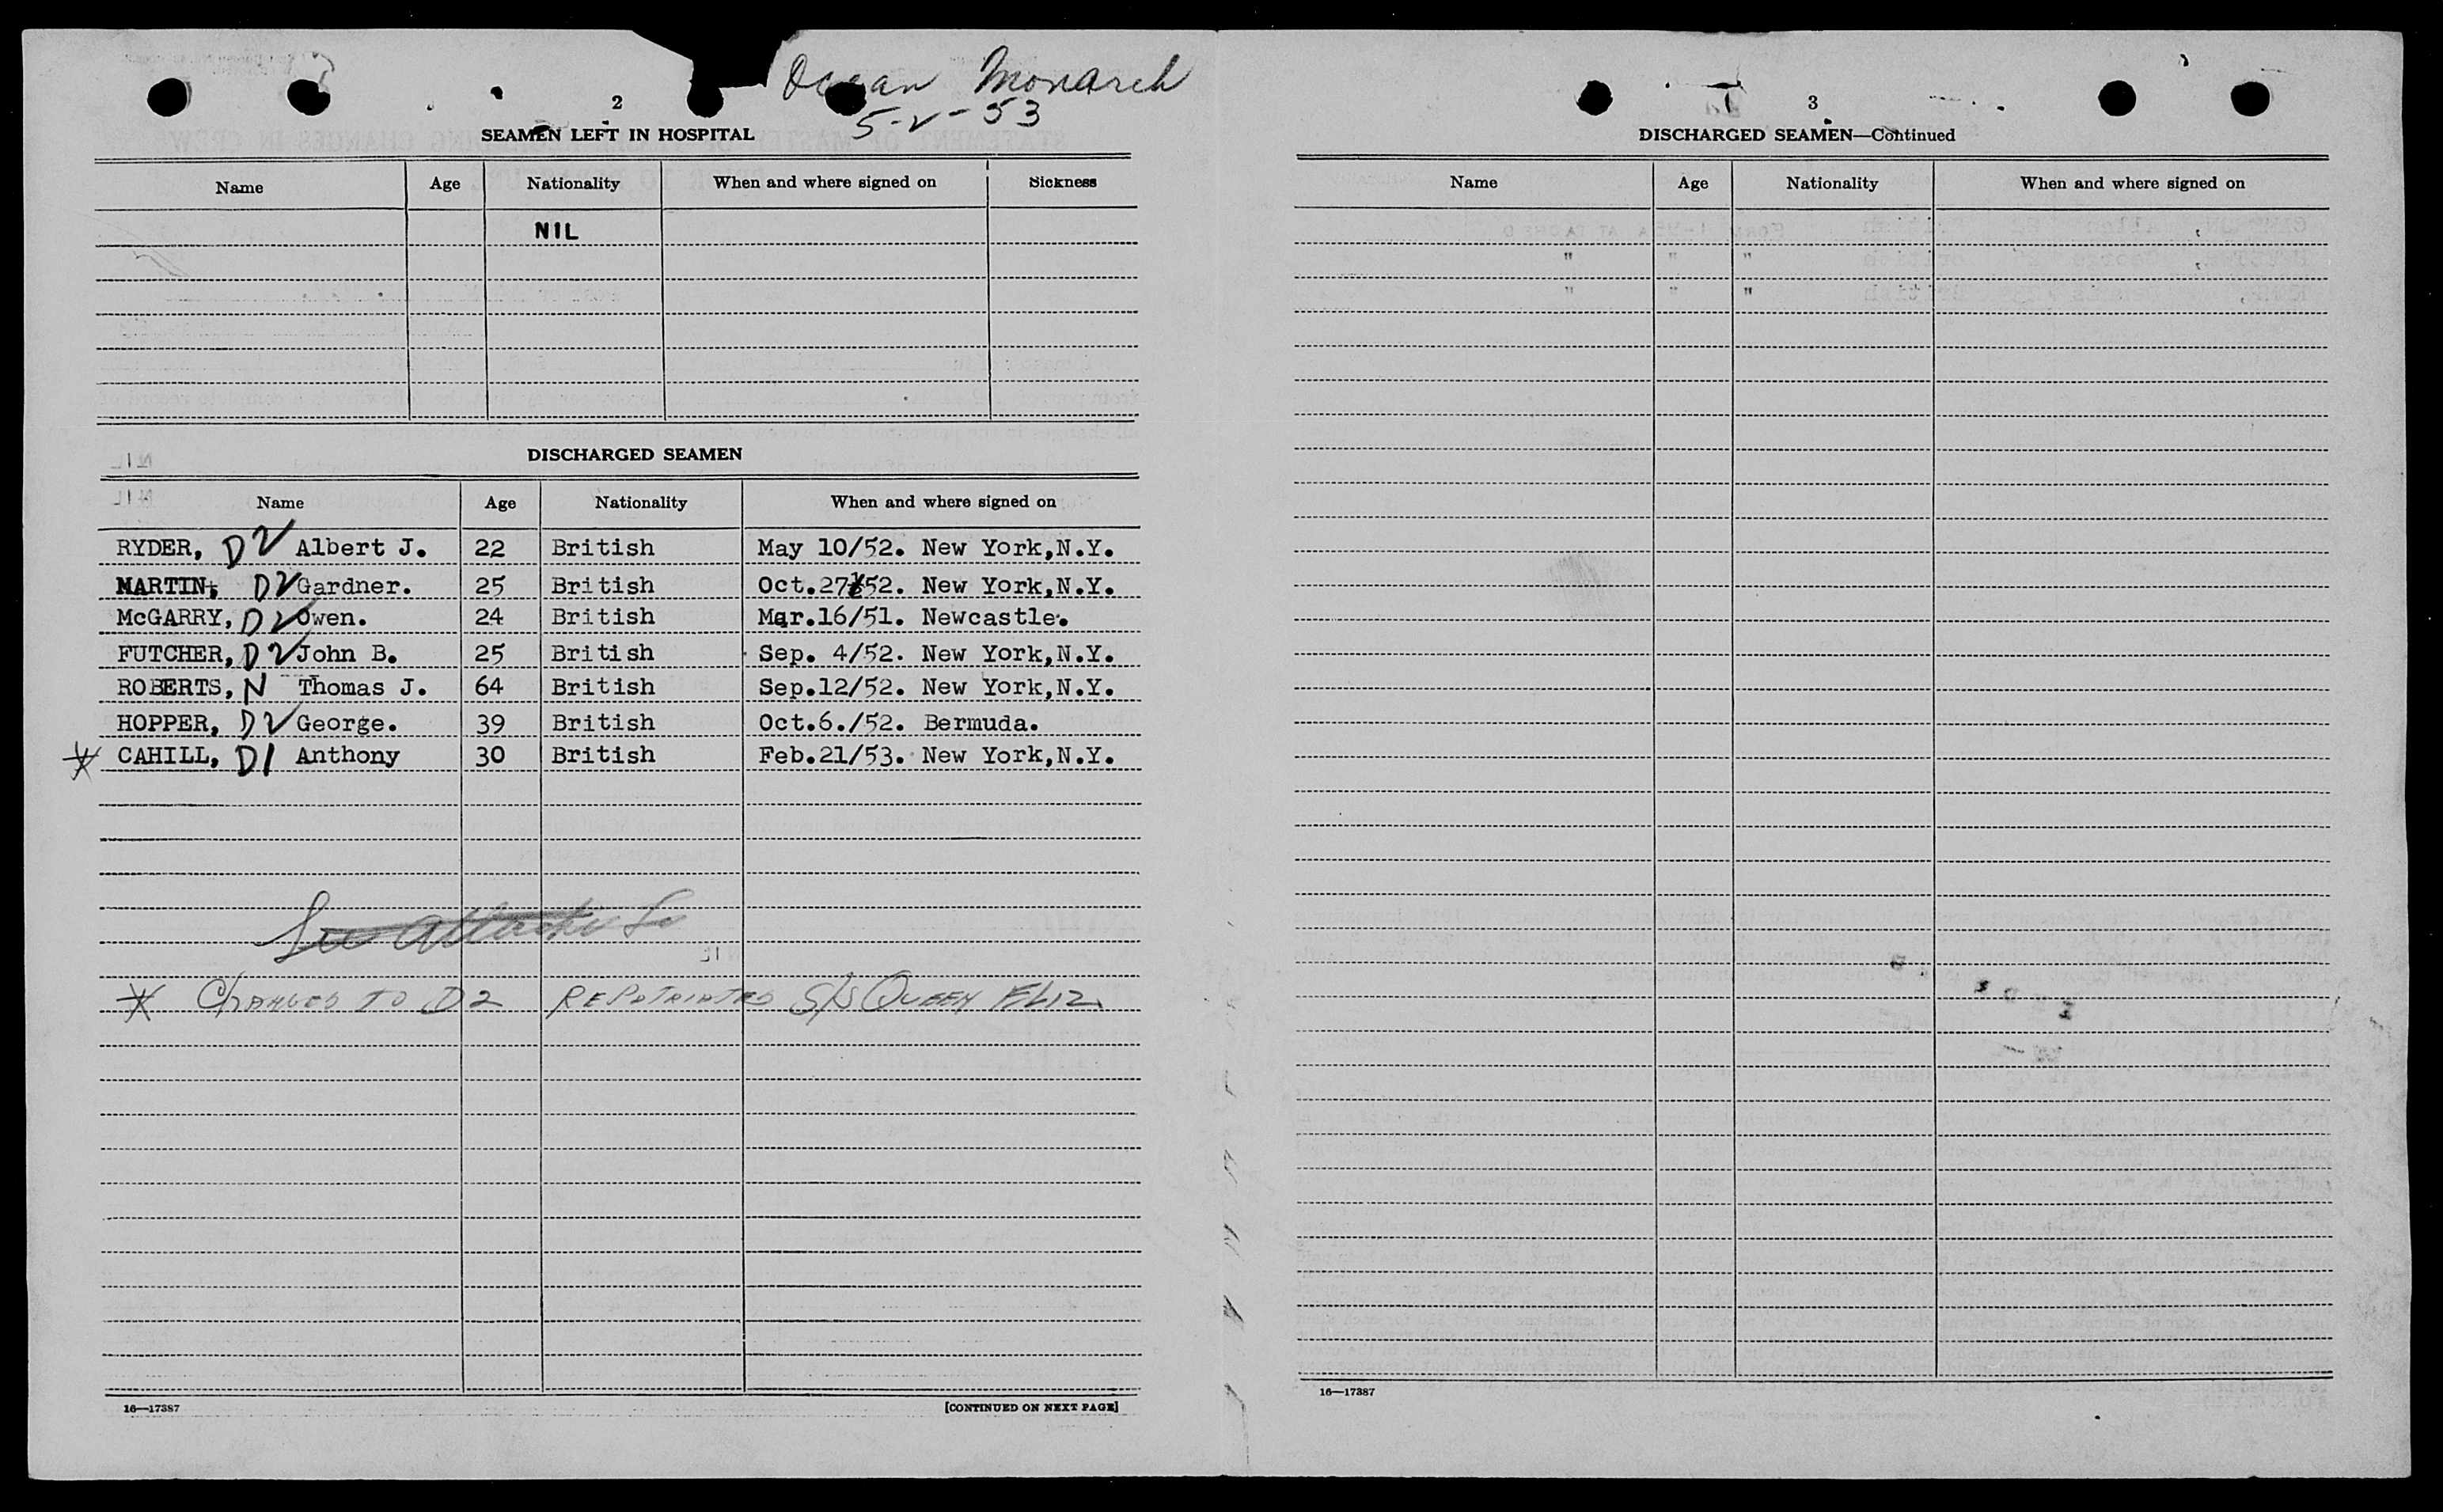 Ocean Monarch
5-2-53
2
SEAMEN LEFT IN HOSPITAL
Name Age Nationality When and where signed on Sickness
NIL
DISCHARGED SEAMEN
Name Age Nationality When and where signed on
RYDER, D2 Albert J. 22 British May 10/52. New York,N.Y.
MARTIN, D2 Gardner. 25 British Oct.27/52. New York,N.Y.
McGARRY, D2 Owen. 24 British Mar.16/51. Newcastle.
FUTCHER, D2 John B. 25 British Sep. 4/52. New York,N.Y.
ROBERTS, N Thomas J. 64 British Sep.12/52. New York,N.Y.
HOPPER, D2 George. 39 British Oct.6./52. Bermuda.
* CAHILL, D1 Anthony 30 British Feb.21/53. New York,N.Y.
See attached
* Changed to D2 Repatriated S/S Queen Eliz.
16—17387 [CONTINUED ON NEXT PAGE]
3
DISCHARGED SEAMEN—Continued
Name Age Nationality When and where signed on
16—17387